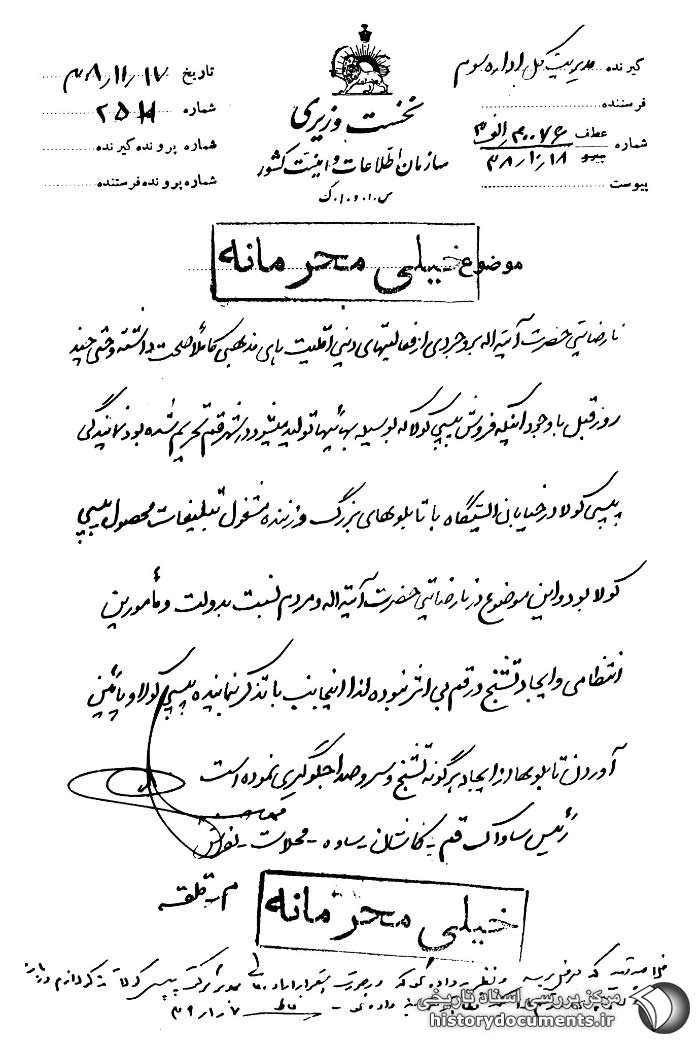 گیرنده مدیریت کل اداره سوم
فرستنده
شماره عطف ۳۰۰۷۶ الف
پیرو ۳۸/۱۰/۱۸
پیوست
نخست وزیری
سازمان اطلاعات و امنیت کشور
س.ا.و.ا.ک
تاریخ ۳۸/۱۱/۱۷
شماره
شماره پرونده گیرنده
شماره پرونده فرستنده
موضوع خیلی محرمانه
نارضایتی حضرت آیة اله بروجردی از فعالیتهای دینی اقلیت های مذهبی کاملا صحت داشته و حتی چند
روز قبل با وجود اینکه فروش پپسی کولا که بوسیله بهائیها تولید میشود در شهر قم تحریم شده بود نمایندگی
پپسی کولا در خیابان ایستگاه با تابلوهای بزرگ و زننده مشغول تبلیغات محصول پپسی
کولا بود و این موضوع در نارضایتی حضرت آیة اله و مردم نسبت بدولت و مأمورین
انتظامی و ایجاد تشنج در قم بی اثر نبوده لذا اینجانب با تذکر نماینده پپسی کولا و پائین
آوردن تابلوها از ایجاد هرگونه تشنج و سر و صدا جلوگیری نموده است
رئیس ساواک قم - کاشان - ساوه - محلات - تفرش
خیلی محرمانه
۳۹/۱/۷
مرکز بررسی اسناد تاریخی
historydocuments.ir